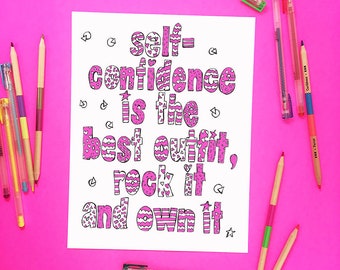 self-
confidence
is the
best outfit,
rock it
and own it